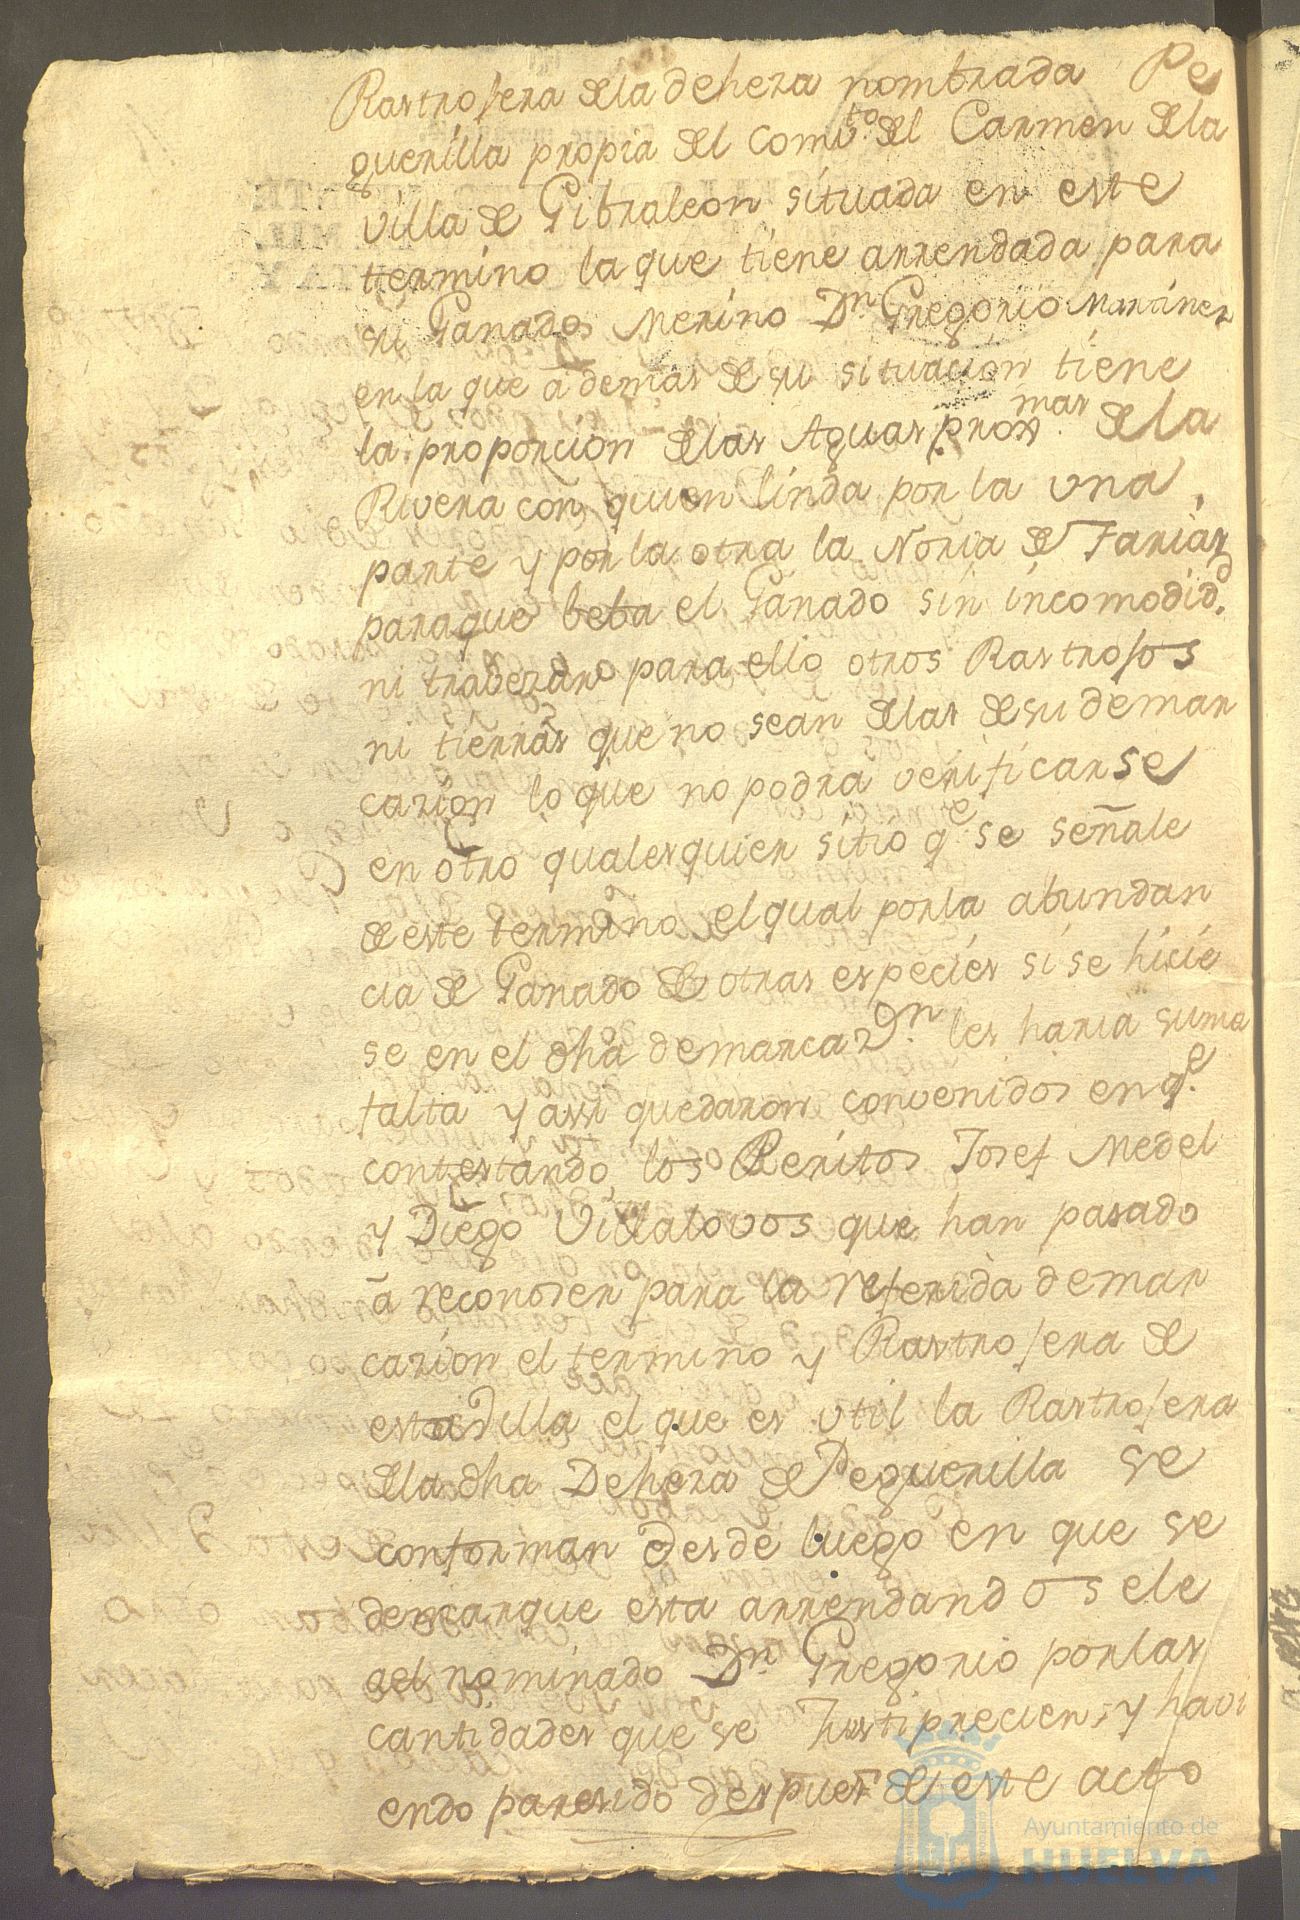 Rastrojera de la deheza nombrada Pe
guerilla propia del Comto. del Carmen de la
villa de Gibraleon situada en este
termino la que tiene arrendada para
su Ganados Merino Dn. Gregorio Martinez
en la que ademas de su situacion tiene
la proporcion de las Aguas proxmas. de la
Rivera con quien linda por la una
parte y por la otra la Noria de Farias
para que beba el Ganado sin incomodidd.
ni trabezar para ello otros Rastrojos
ni tierras que no sean de las de su demar
cazion lo que no podra verificarse
en otro qualesquier sitio qe. se señale
de este termino el qual por la abundan
cia de Ganado de otras especies si se hicie
se en el dha demarcazon. les haria suma
falta y assi quedaron convenidos en qe.
contestando los Peritos Josef Medel
y Diego Villalovos que han pasado
a reconoser para la referida demar
cazion el termino y Rastrojera de
esta villa el que es util la Rastrojera
de la dha Deheza de Peguerilla se
conforman desde luego en que se
demarque esta arrendandosele
ael nominado Dn. Gregorio por las
cantidades que se Justiprecien, y havi
endo paresido despues de este acto
Ayuntamiento de
HUELVA